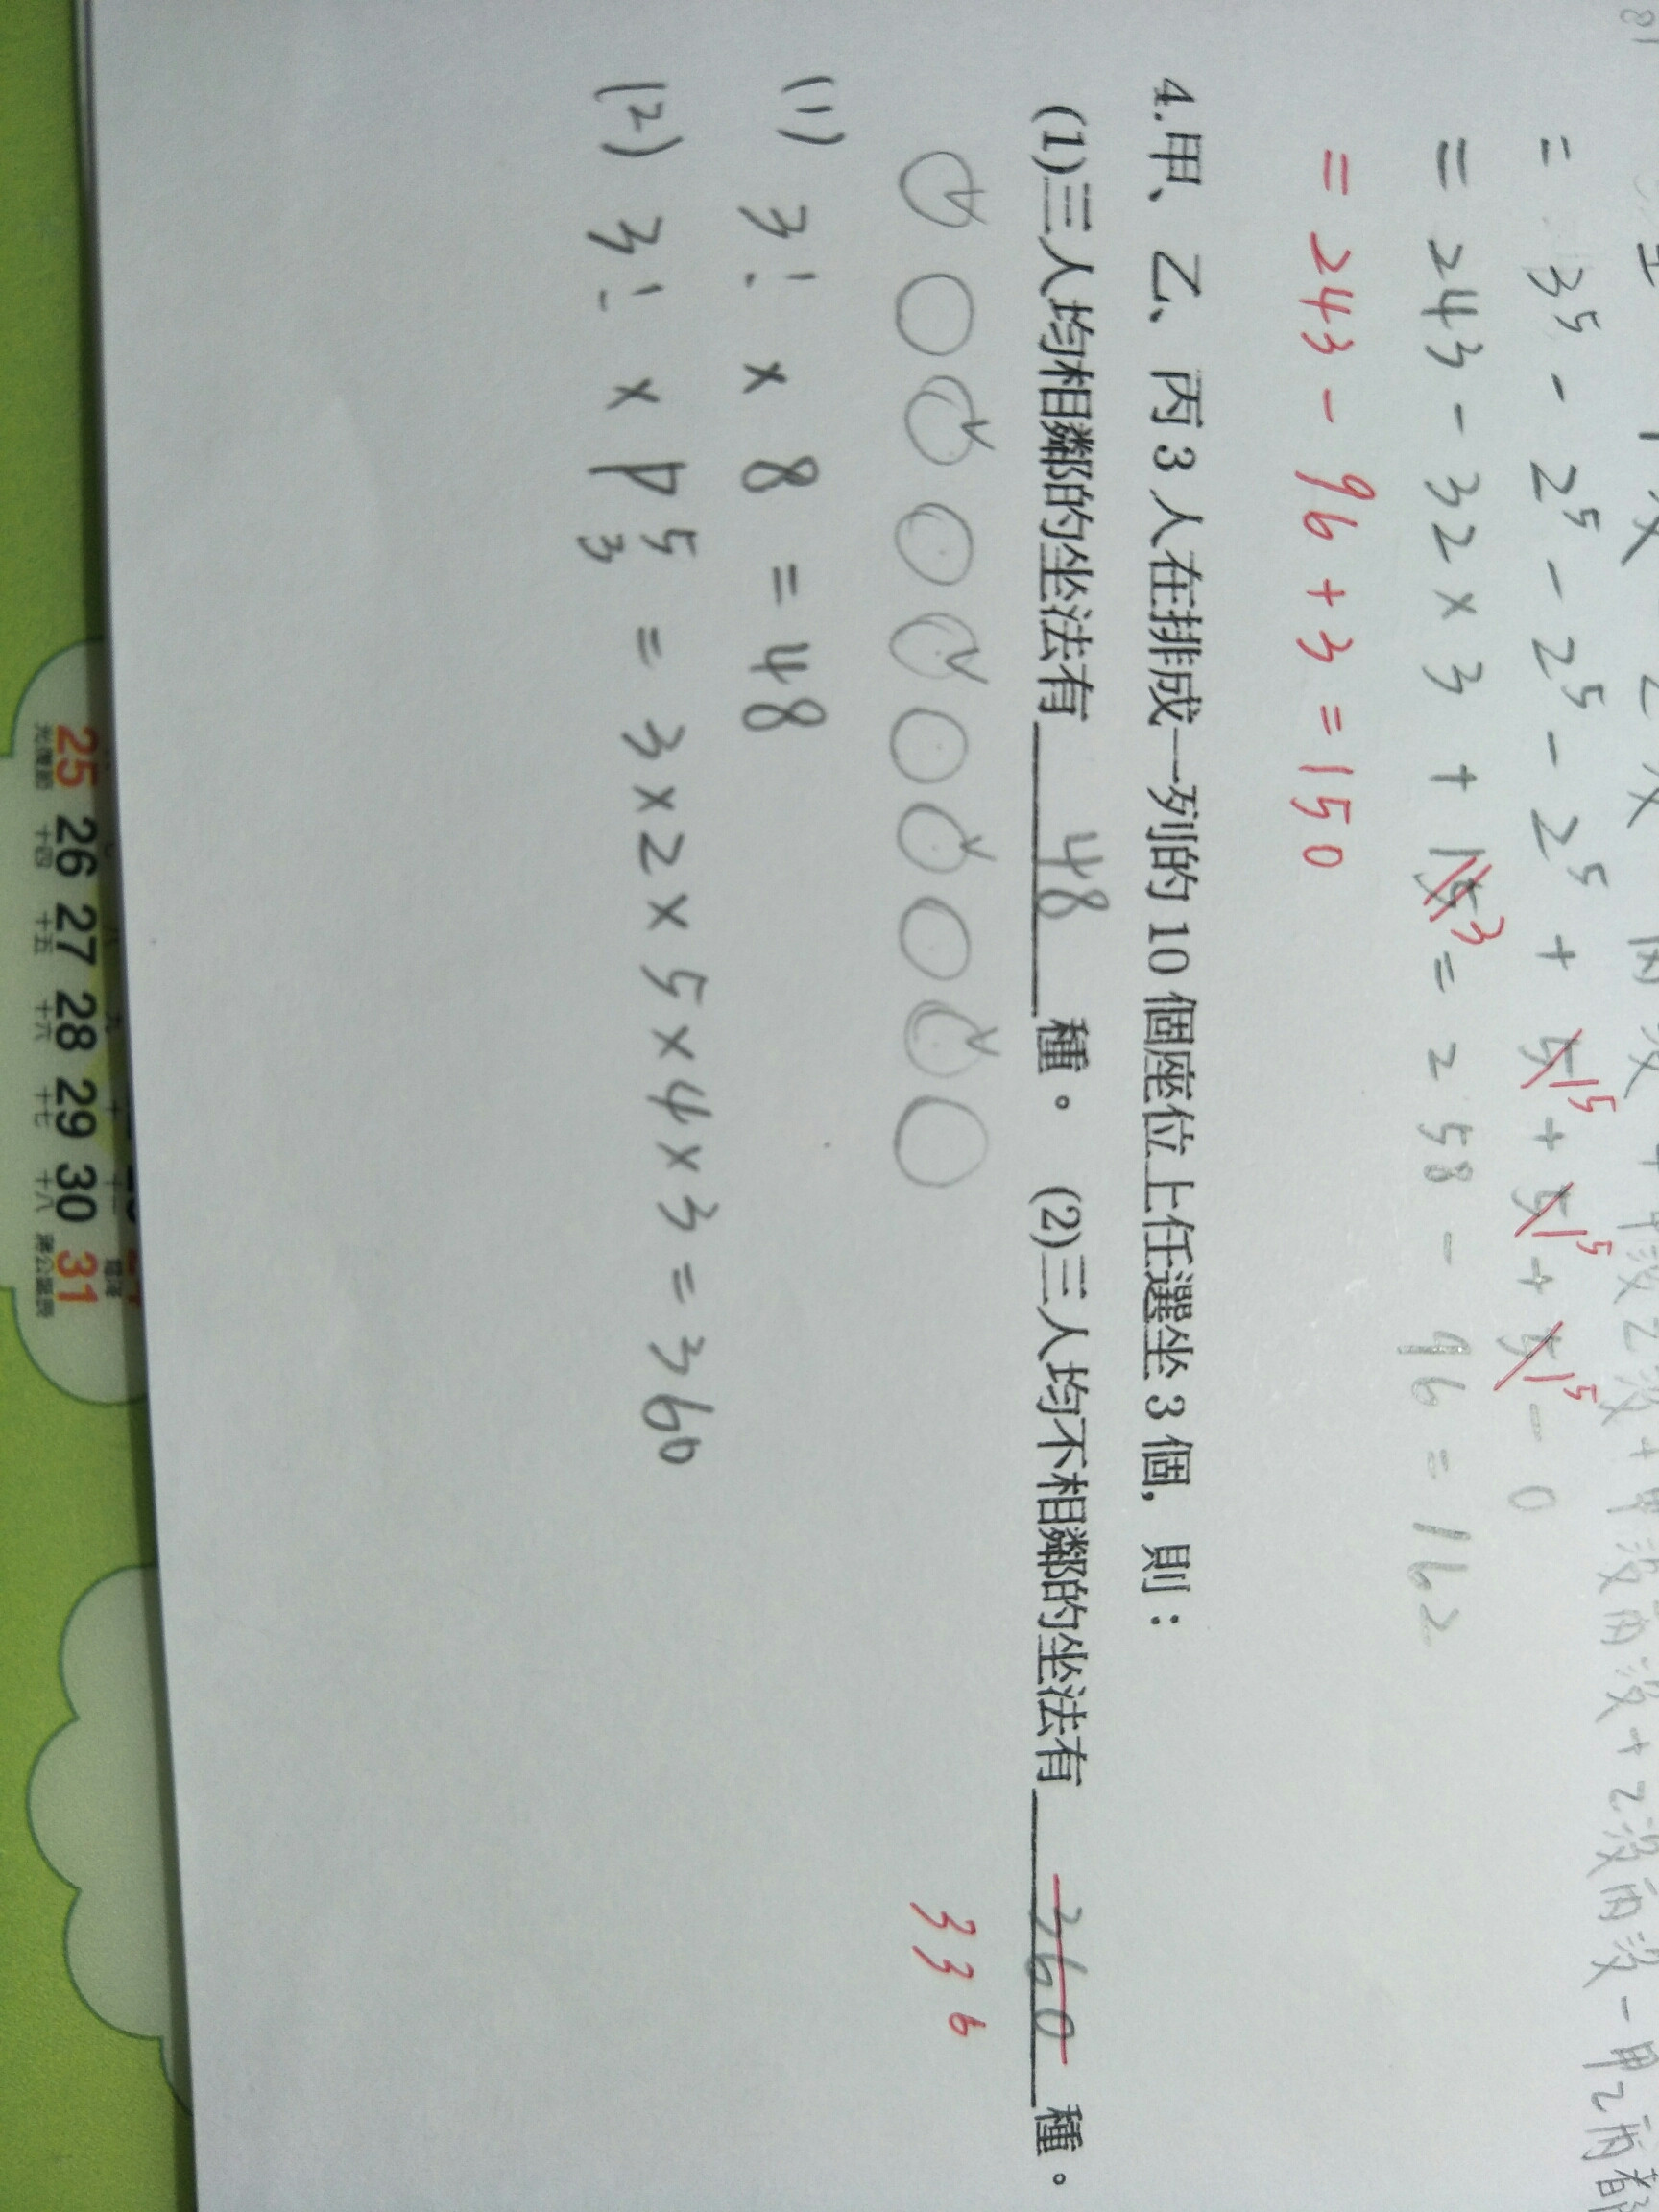 = 3⁵ - 2⁵ - 2⁵ - 2⁵ + 1⁵ + 1⁵ + 1⁵ - 0
= 243 - 32 × 3 + 3 = 258 - 96 = 162
= 243 - 96 + 3 = 150
4.甲、乙、丙 3 人在排成一列的 10 個座位上任選坐 3 個, 則：
(1)三人均相鄰的坐法有 48 種。 (2)三人均不相鄰的坐法有 360 種。
336
(1) 3! × 8 = 48
(2) 3! × P⁵₃ = 3 × 2 × 5 × 4 × 3 = 360
25 26 27 28 29 30 31
光復節 十四 十五 十六 十七 十八